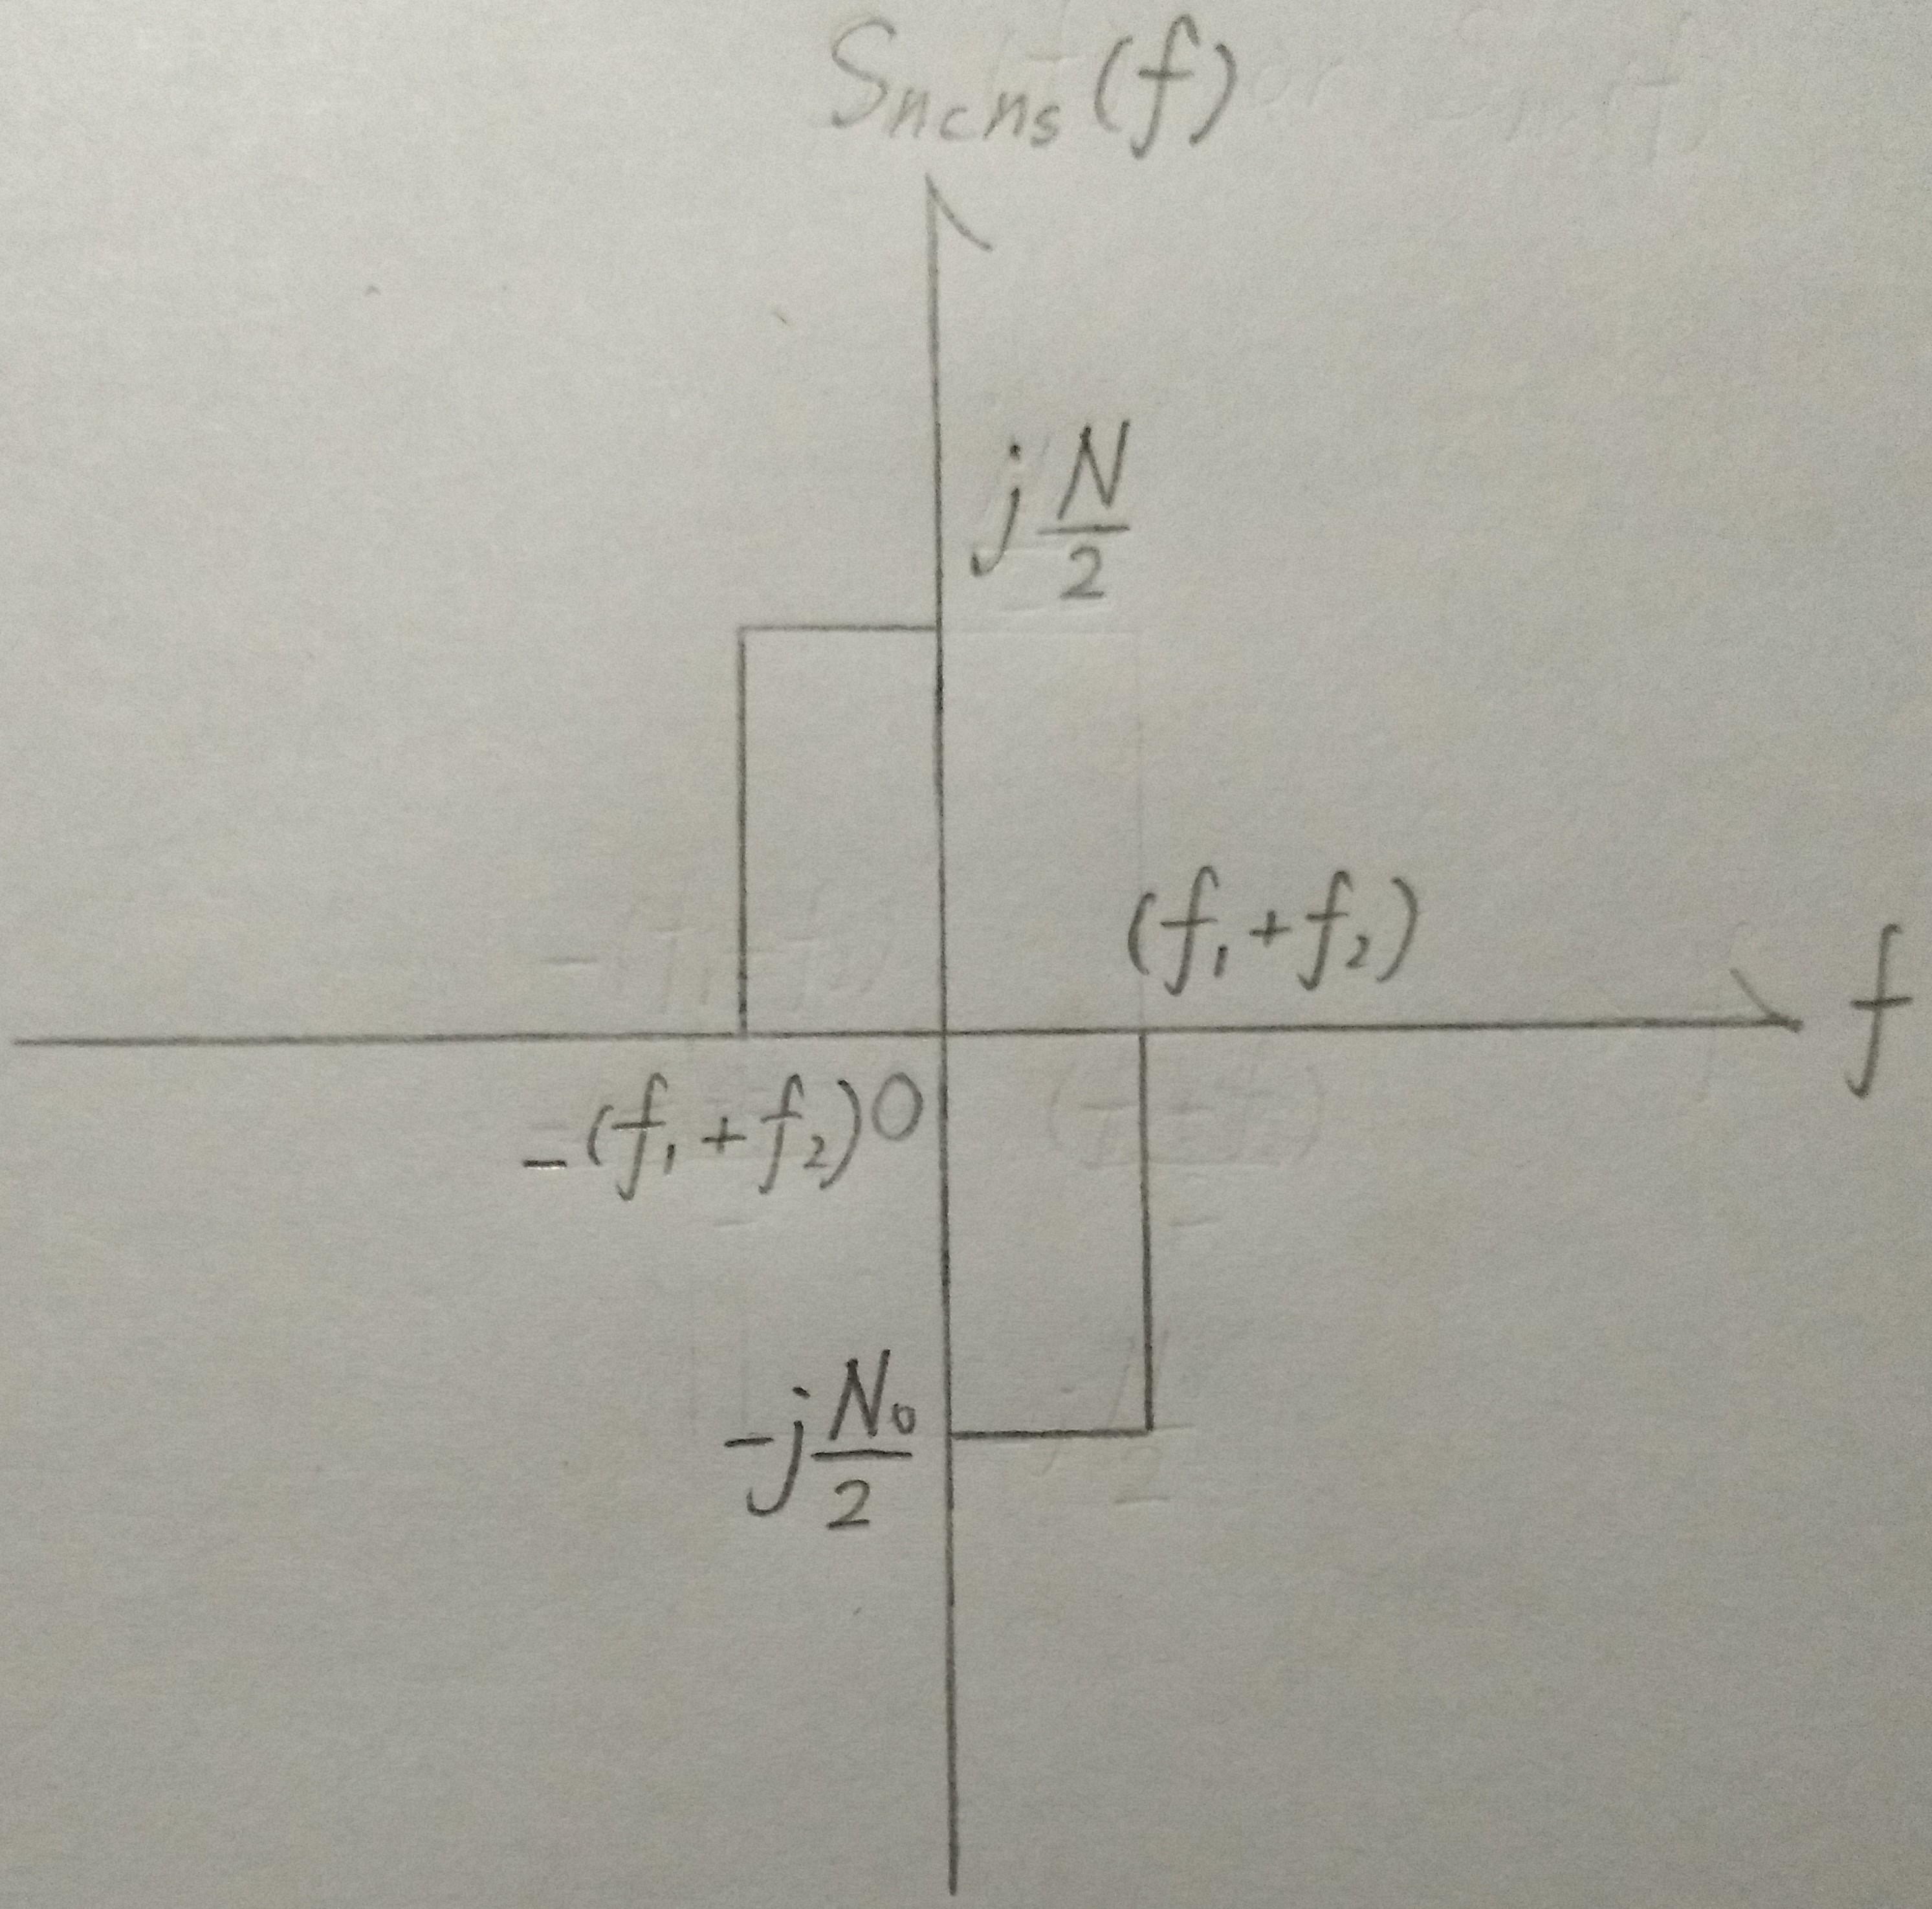 Sncns(f)
j N/2
(f₁+f₂)
f
-(f₁+f₂) 0
-j N₀/2